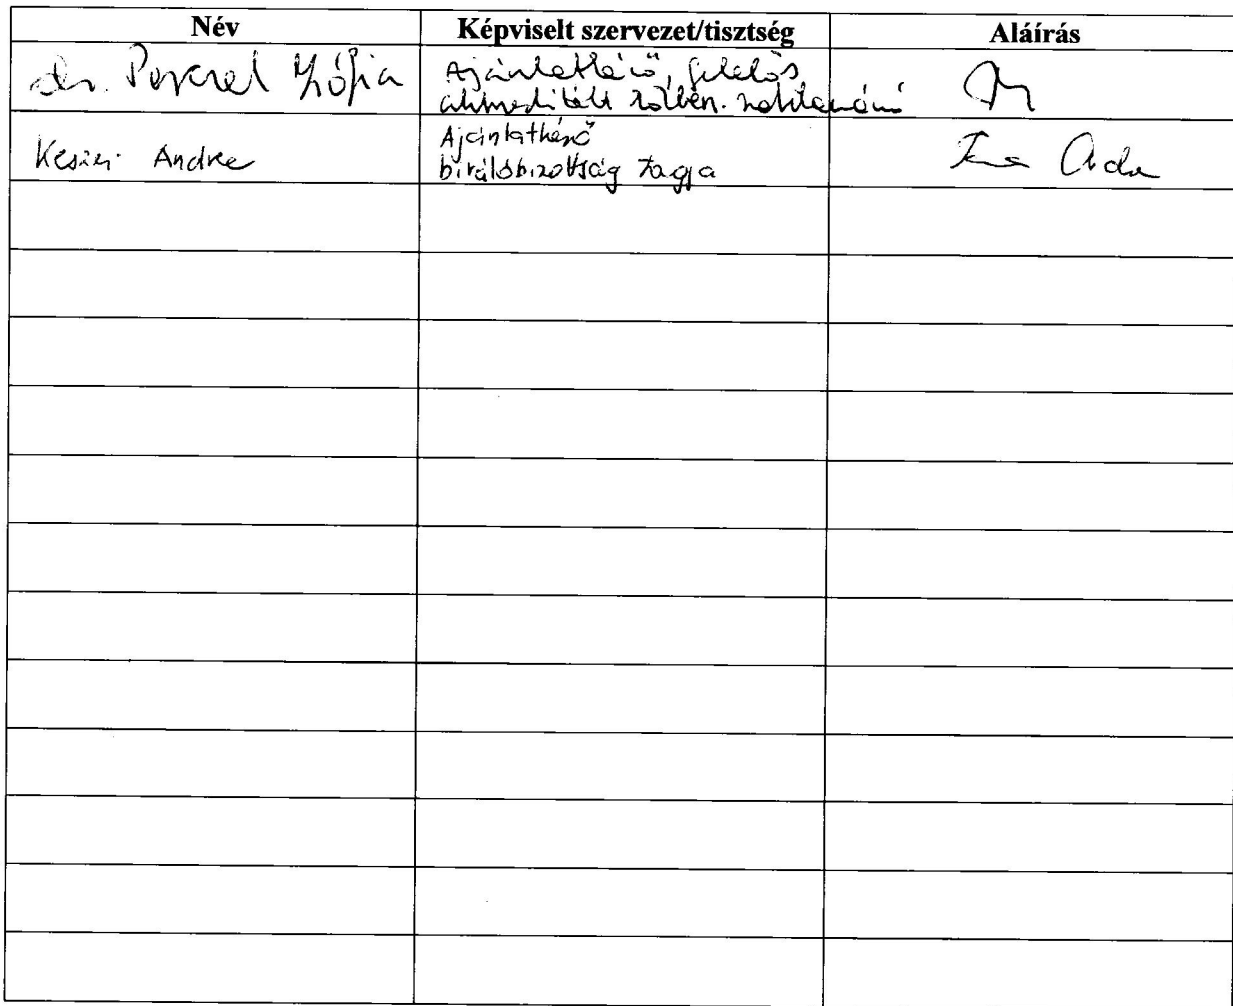 Név Képviselt szervezet/tisztség Aláírás
dr. Zsófia Ajánlatkérő, felelős
akkreditált közbesz. szaktanácsadó
Ajánlatkérő
Andrea bírálóbizottság tagja